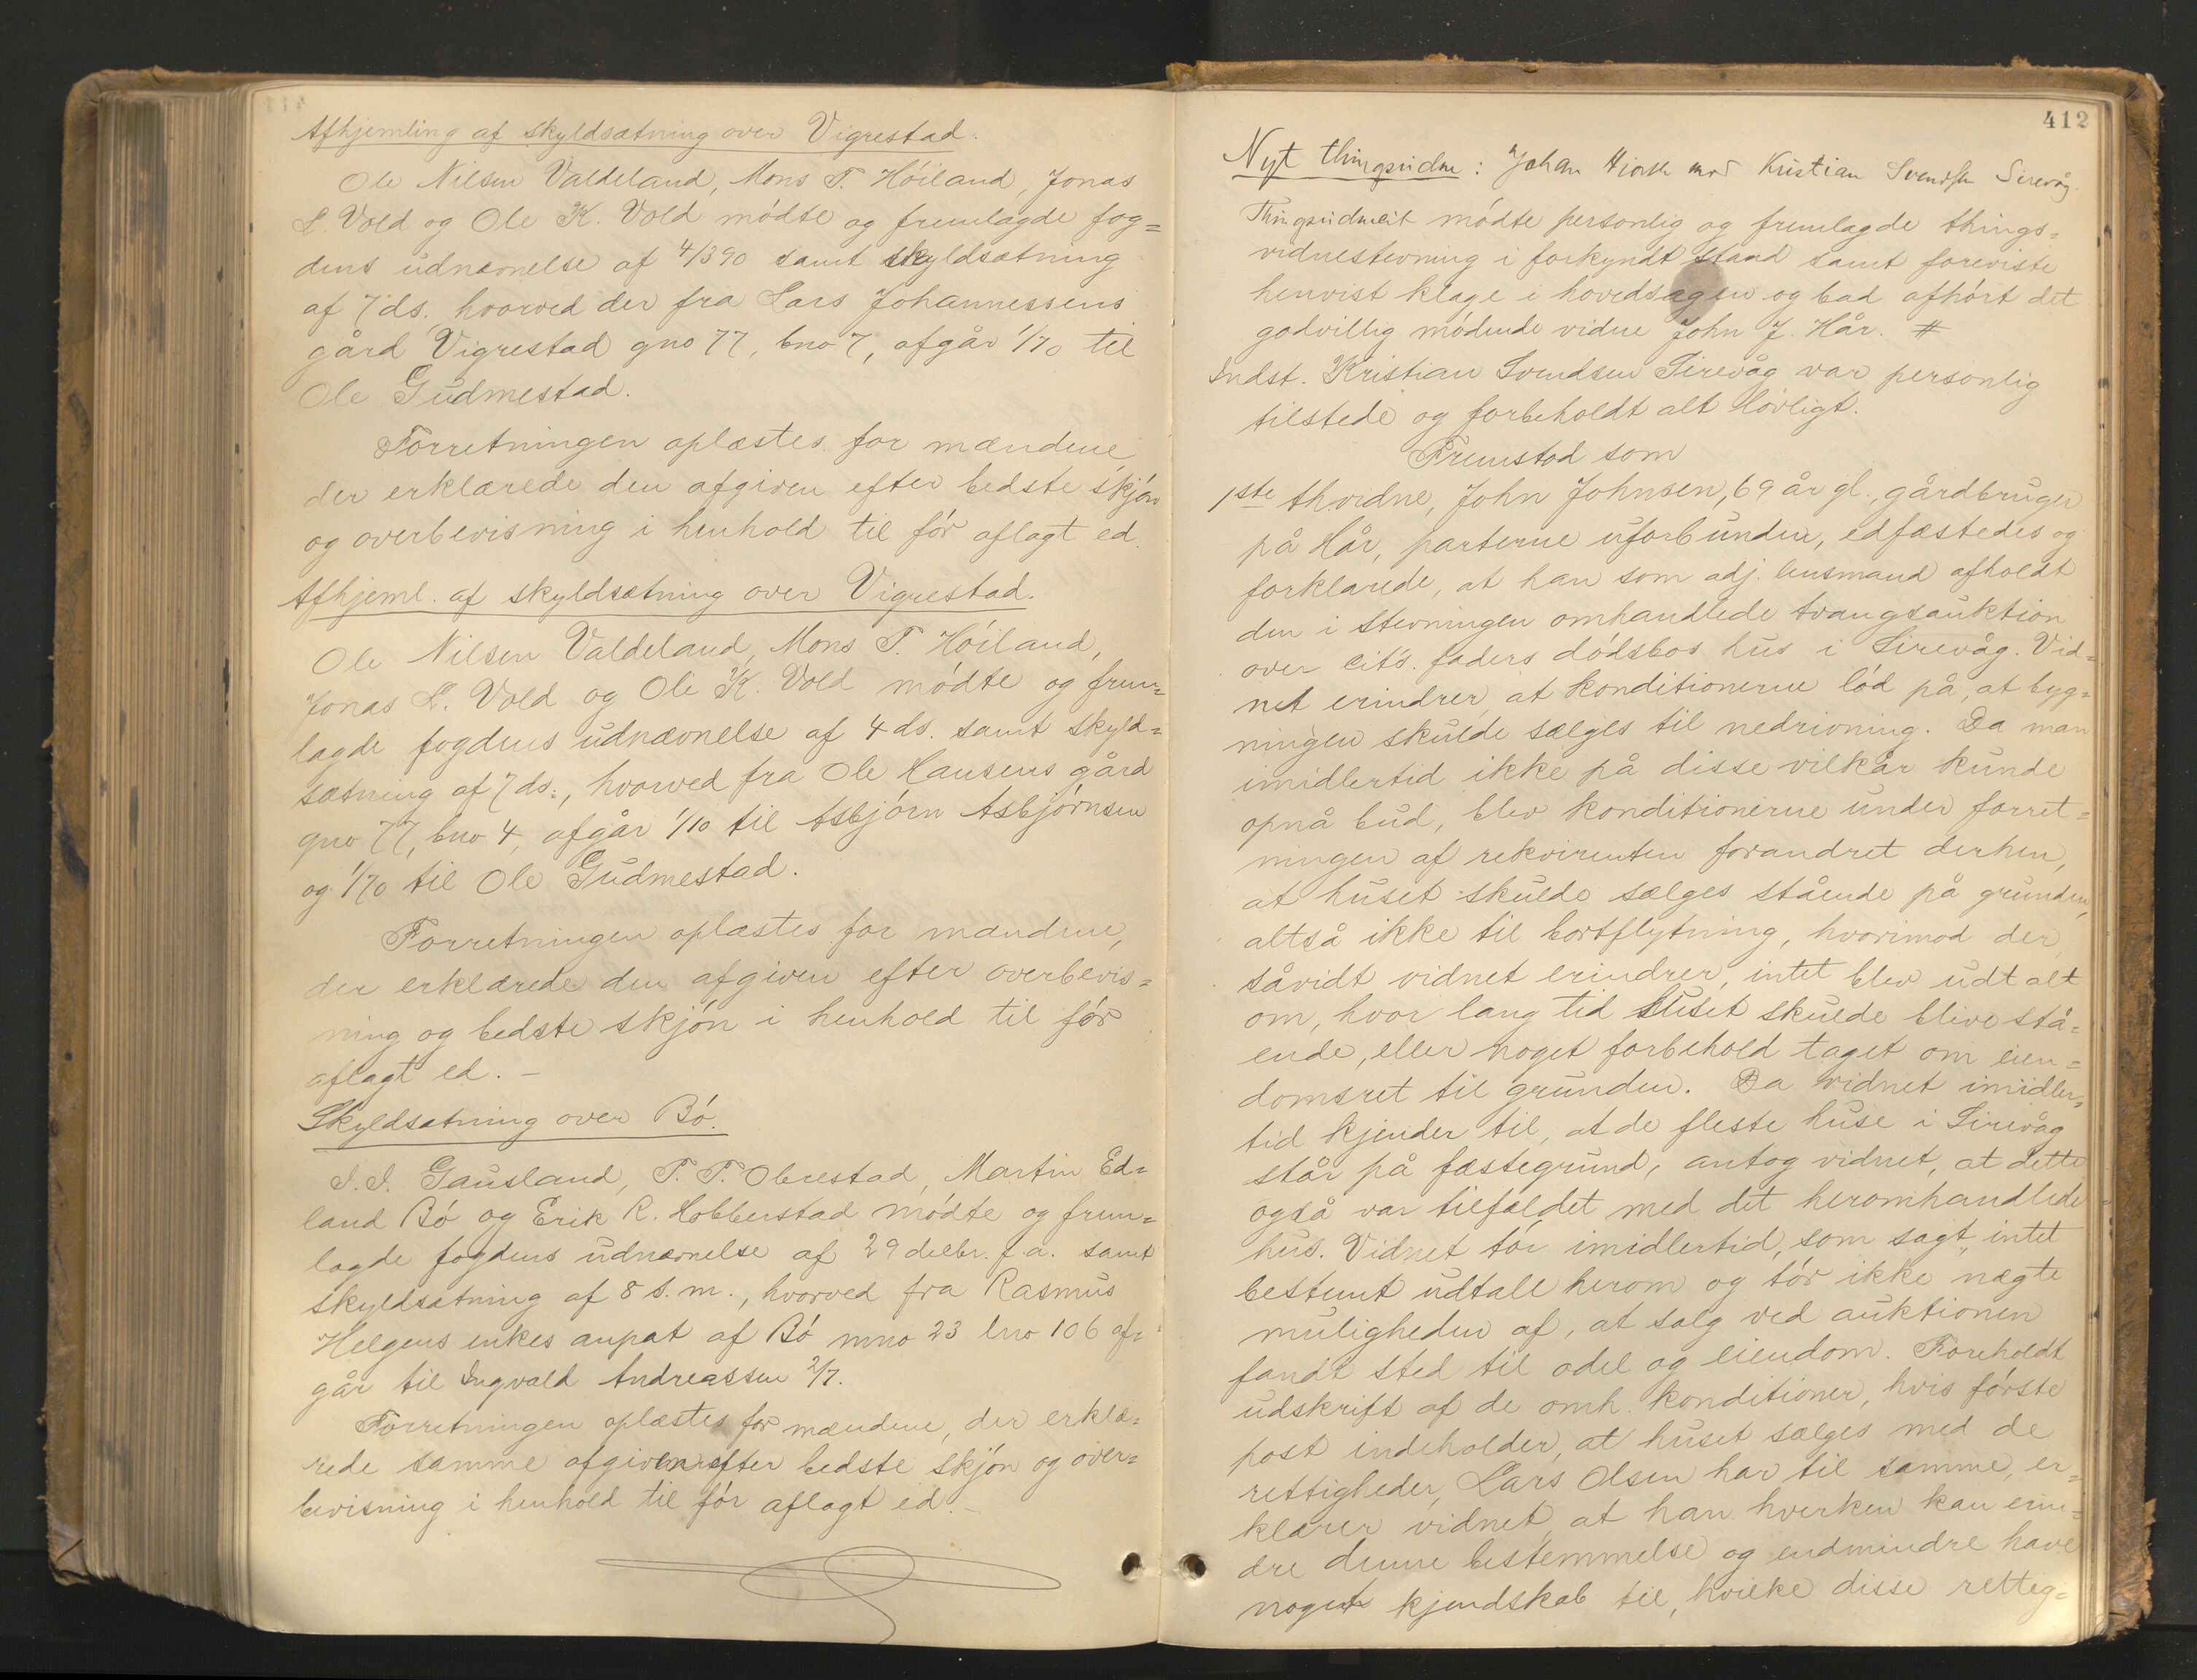 Afhjemling af skyldsætning over Vigrestad.
Ole Nilsen Valdeland, Mons T. Höiland, Jonas
L. Vold og Ole K. Vold mödte og fremlagde fog=
dens udnævnelse af 4/3 90 samt skyldsætning
af 7 ds. hvorved der fra Lars Johannessens
gård Vigrestad gno 77, bno 7, afgår 1/70 til
Ole Gudmestad.
Forretningen oplæstes for mændene,
der erklærede den afgiven efter bedste skjön
og overbevisning i henhold til för aflagt ed.
Afhjeml. af skyldsætning over Vigrestad.
Ole Nilsen Valdeland, Mons T. Höiland,
Jonas L. Vold og Ole K. Vold mödte og frem=
lagde fogdens udnævnelse af 4 ds. samt skyld=
sætning af 7 ds., hvorved fra Ole Hansens gård
gno 77, bno 4, afgår 1/10 til Asbjörn Asbjörnsen
og 1/70 til Ole Gudmestad.
Forretningen oplæstes for mændene,
der erklærede den afgiven efter overbevis=
ning og bedste skjön i henhold til för
aflagt ed. -
Skyldsætning over Bö.
I. I. Gausland, T. T. Obrestad, Martin Ed=
land Bö og Erik R. Hobberstad mödte og frem=
lagde fogdens udnævnelse af 29 decbr. f. a. samt
skyldsætning af 8 s. m., hvorved fra Rasmus
Helgens enkes anpat af Bö mno 23 lno 106 af=
går til Ingvald Andreassen 2/7.
Forretningen oplæstes for mændene, der erklæ=
rede samme afgiven efter bedste skjön og over=
bevisning i henhold til för aflagt ed. -
412
Nyt thingsvidne: Johan mod Kristian Svendsen Sirevåg.
mödte personlig og fremlagde things=
vidnestevning i forkyndt stand samt foreviste
henvist klage i hovedsagen og bad afhört det
godvillig mödende vidne John J. Hår. #
Indst. Kristian Svendsen Sirevåg var personlig
tilstede og forbeholdt alt lovligt.
Fremstod som
1ste th.vidne, John Johnsen, 69 år gl., gårdbruger
på Hår, parterne uforbunden, edfæstedes og
forklarede, at han som adj. lensmand afholdt
den i stevningen omhandlede tvangsauktion
over cit's. faders dödsbos hus i Sirevåg. Vid=
net erindrer, at konditionerne löd på, at byg=
ningen skulde sælges til nedrivning. Da man
imidlertid ikke på disse vilkår kunde
opnå bud, blev konditionerne under forret=
ningen af rekvirenten forandret derhen,
at huset skulde sælges stående på grunden,
altså ikke til bortflytning, hvorimod der,
såvidt vidnet erindrer, intet blev udtalt
om, hvor lang tid huset skulde blive stå=
ende, eller noget forbehold taget om eien=
domsret til grunden. Da vidnet imidler=
tid kjender til, at de fleste huse i Sirevåg
står på fæstegrund, antog vidnet, at dette
også var tilfældet med det heromhandlede
hus. Vidnet tör imidlertid, som sagt, intet
bestemt udtale herom og tör ikke nægte
muligheden af, at salg ved auktionen
fandt sted til odel og eiendom. Foreholdt
udskrift af de omh. konditioner, hvis förste
post indeholder, at huset sælges med de
rettigheder, Lars Olsen har til samme, er=
klærer vidnet, at han hverken kan erin=
dre denne bestemmelse og endmindre have
noget kjendskab til, hvilke disse rettig=